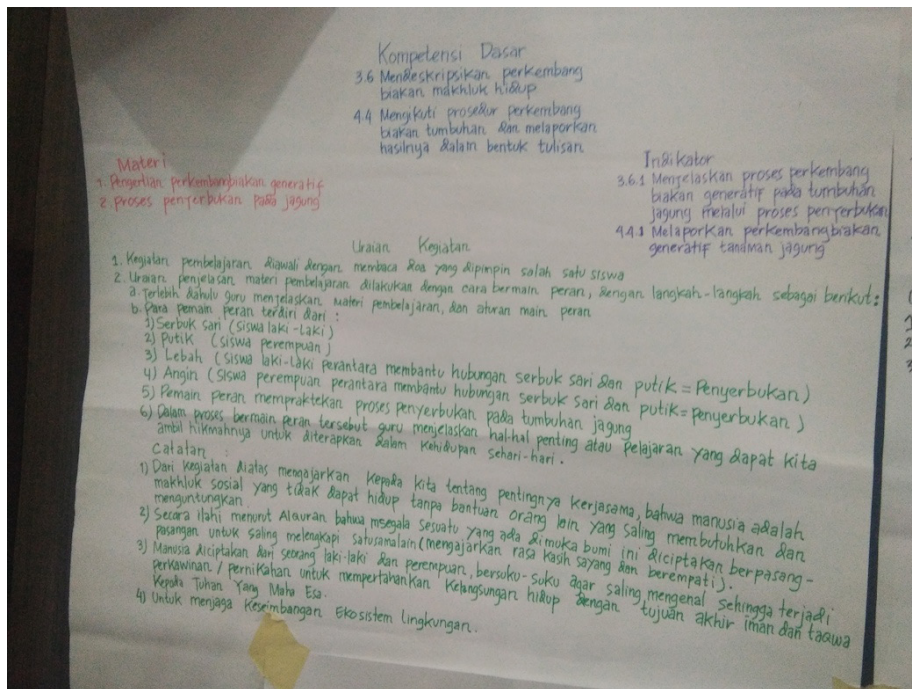 Kompetensi Dasar
3.6 Mendeskripsikan perkembang
biakan makhluk hidup
4.4 Mengikuti prosedur perkembang
biakan tumbuhan dan melaporkan
hasilnya dalam bentuk tulisan
Materi
1. Pengertian perkembangbiakan generatif
2. proses penyerbukan pada jagung
Indikator
3.6.1 Menjelaskan proses perkembang
biakan generatif pada tumbuhan
jagung melalui proses penyerbukan
4.4.1 Melaporkan perkembangbiakan
generatif tanaman jagung
Uraian Kegiatan
1. Kegiatan pembelajaran diawali dengan membaca doa yang dipinpin salah satu siswa
2. Uraian penjelasan materi pembelajaran dilakukan dengan cara bermain peran, dengan langkah-langkah sebagai berikut :
a. Terlebih dahulu guru menjelaskan materi pembelajaran, dan aturan main peran
b. Para pemain peran terdiri dari :
1) Serbuk sari (siswa laki-laki)
2) Putik (siswa perempuan)
3) Lebah (siswa laki-laki perantara membantu hubungan serbuk sari dan putik = Penyerbukan)
4) Angin (siswa perempuan perantara membantu hubungan serbuk sari dan putik = penyerbukan)
5) Pemain peran mempraktekan proses penyerbukan pada tumbuhan jagung
6) Dalam proses bermain peran tersebut guru menjelaskan hal-hal penting atau pelajaran yang dapat kita
ambil hikmahnya untuk diterapkan dalam kehidupan sehari-hari.
Catatan :
1) Dari kegiatan diatas mengajarkan kepada kita tentang pentingnya kerjasama, bahwa manusia adalah
makhluk sosial yang tidak dapat hidup tanpa bantuan orang lain yang saling membutuhkan dan
menguntungkan.
2) Secara ilahi menurut Alquran bahwa msegala sesuatu yang ada dimuka bumi ini diciptakan berpasang-
pasangan untuk saling melengkapi satusamalain (mengajarkan rasa kasih sayang dan berempati).
3) Manusia diciptakan dari seorang laki-laki dan perempuan, bersuku-suku agar saling mengenal sehingga terjadi
perkawinan / pernikahan untuk mempertahankan kelangsungan hidup dengan tujuan akhir iman dan taqwa
kepada Tuhan Yang Maha Esa.
4) Untuk menjaga keseimbangan Ekosistem lingkungan.